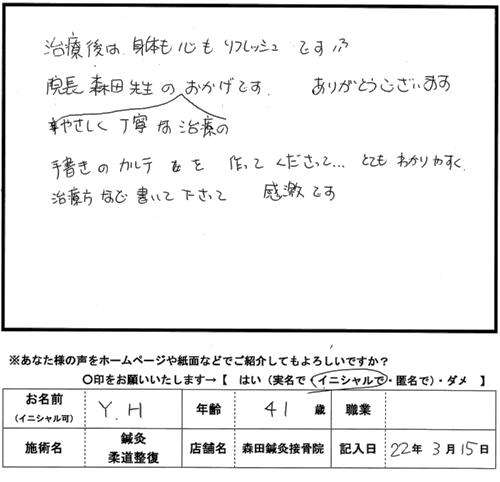 治療後は 身体も心も リフレッシュ です
院長 森田先生の おかげです。 ありがとうございます
やさしく 丁寧な治療の
手書きの カルテ を 作って くださって… とても わかりやすく、
治療方など 書いて下さって 感激です
※あなた様の声をホームページや紙面などでご紹介してもよろしいですか?
〇印をお願いいたします→【 はい(実名で・イニシャルで・匿名で)・ダメ 】
お名前(イニシャル可) Y.H 年齢 41 歳 職業
施術名 鍼灸 柔道整復 店舗名 森田鍼灸接骨院 記入日 22年 3月15日